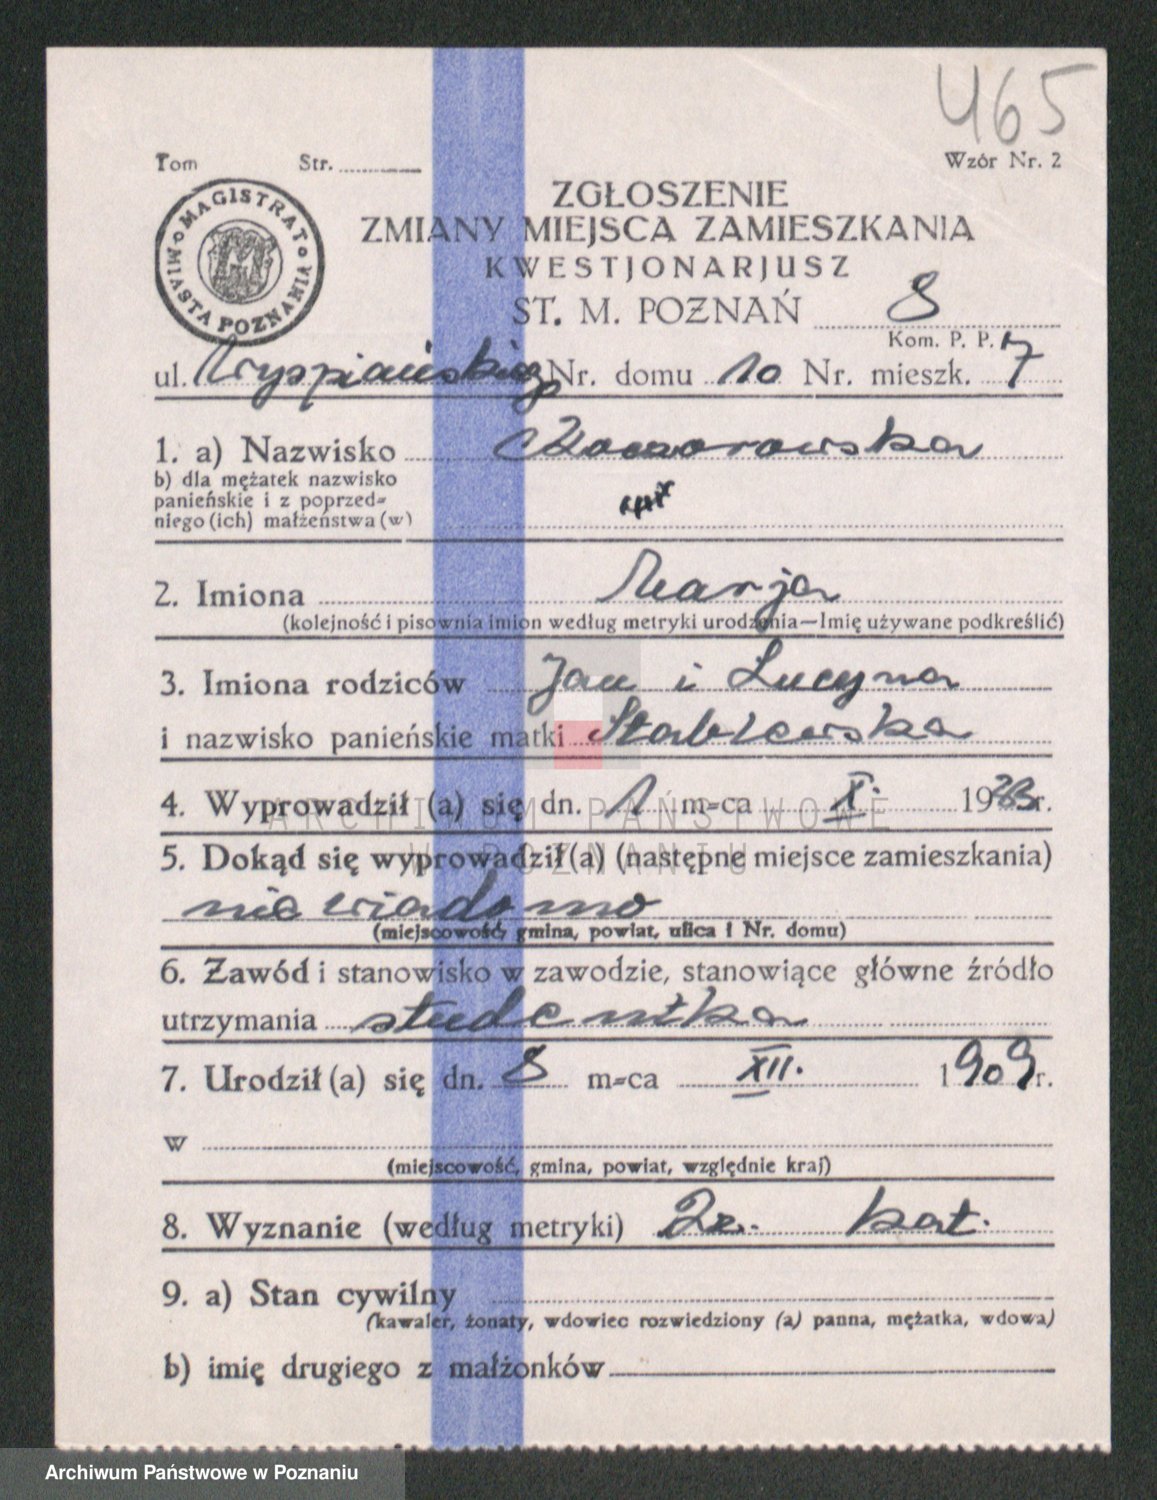 465
Tom Str.
Wzór Nr. 2
MAGISTRAT MIASTA POZNANIA
ZGŁOSZENIE
ZMIANY MIEJSCA ZAMIESZKANIA
KWESTJONARJUSZ
ST. M. POZNAŃ 8
Kom. P. P.
ul. Wyspiańskiego Nr. domu 10 Nr. mieszk. 7
1. a) Nazwisko
b) dla mężatek nazwisko
panieńskie i z poprzed-
niego (ich) małżeństwa (w)
2. Imiona Marja
(kolejność i pisownia imion według metryki urodzenia—Imię używane podkreślić)
3. Imiona rodziców Jan i Lucyna
i nazwisko panieńskie matki Stablewska
4. Wyprowadził (a) się dn. 1 m-ca X. 19 r.
ARCHIWUM PAŃSTWOWE
W POZNANIU
5. Dokąd się wyprowadził (a) (następne miejsce zamieszkania)
nie wiadomo
(miejscowość, gmina, powiat, ulica i Nr. domu)
6. Zawód i stanowisko w zawodzie, stanowiące główne źródło
utrzymania studentka
7. Urodził (a) się dn. 8 m-ca XII. 1909 r.
w
(miejscowość, gmina, powiat, względnie kraj)
8. Wyznanie (według metryki) Rz. kat.
9. a) Stan cywilny
(kawaler, żonaty, wdowiec rozwiedziony (a) panna, mężatka, wdowa)
b) imię drugiego z małżonków
Archiwum Państwowe w Poznaniu